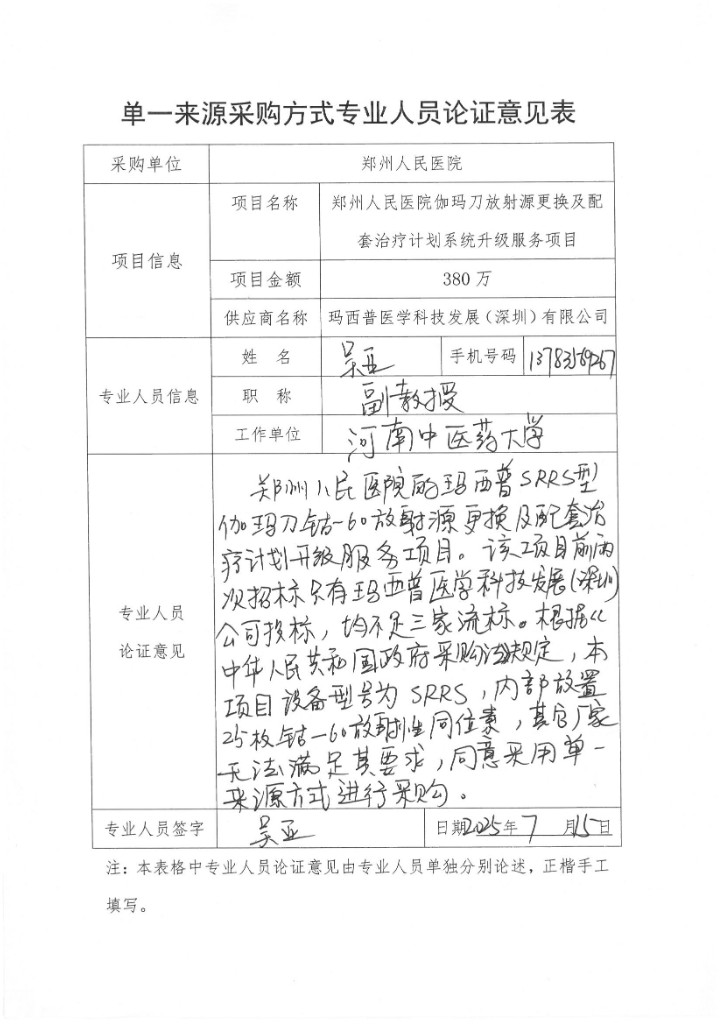 单一来源采购方式专业人员论证意见表
采购单位 郑州人民医院
项目信息
项目名称 郑州人民医院伽玛刀放射源更换及配
套治疗计划系统升级服务项目
项目金额 380 万
供应商名称 玛西普医学科技发展（深圳）有限公司
专业人员信息
姓 名 吴亚 手机号码
职 称 副教授
工作单位 河南中医药大学
专业人员
论证意见
郑州人民医院的玛西普SRRS型
伽玛刀钴-60放射源更换及配套治
疗计划升级服务项目。该项目前两
次招标只有玛西普医学科技发展(深圳)
公司投标，均不足三家流标。根据《
中华人民共和国政府采购法规定，本
项目设备型号为SRRS，内部放置
25枚钴-60放射性同位素，其它厂家
无法满足其要求，同意采用单一
来源方式进行采购。
专业人员签字 吴亚 日期2025年7月15日
注：本表格中专业人员论证意见由专业人员单独分别论述，正楷手工
填写。